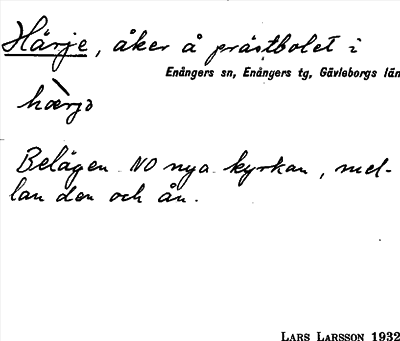 Härje, åker å prästbolet i
Enångers sn, Enångers tg, Gävleborgs län
hærjə
Belägen NO nya kyrkan, mel-
lan den och ån.
LARS LARSSON 1932